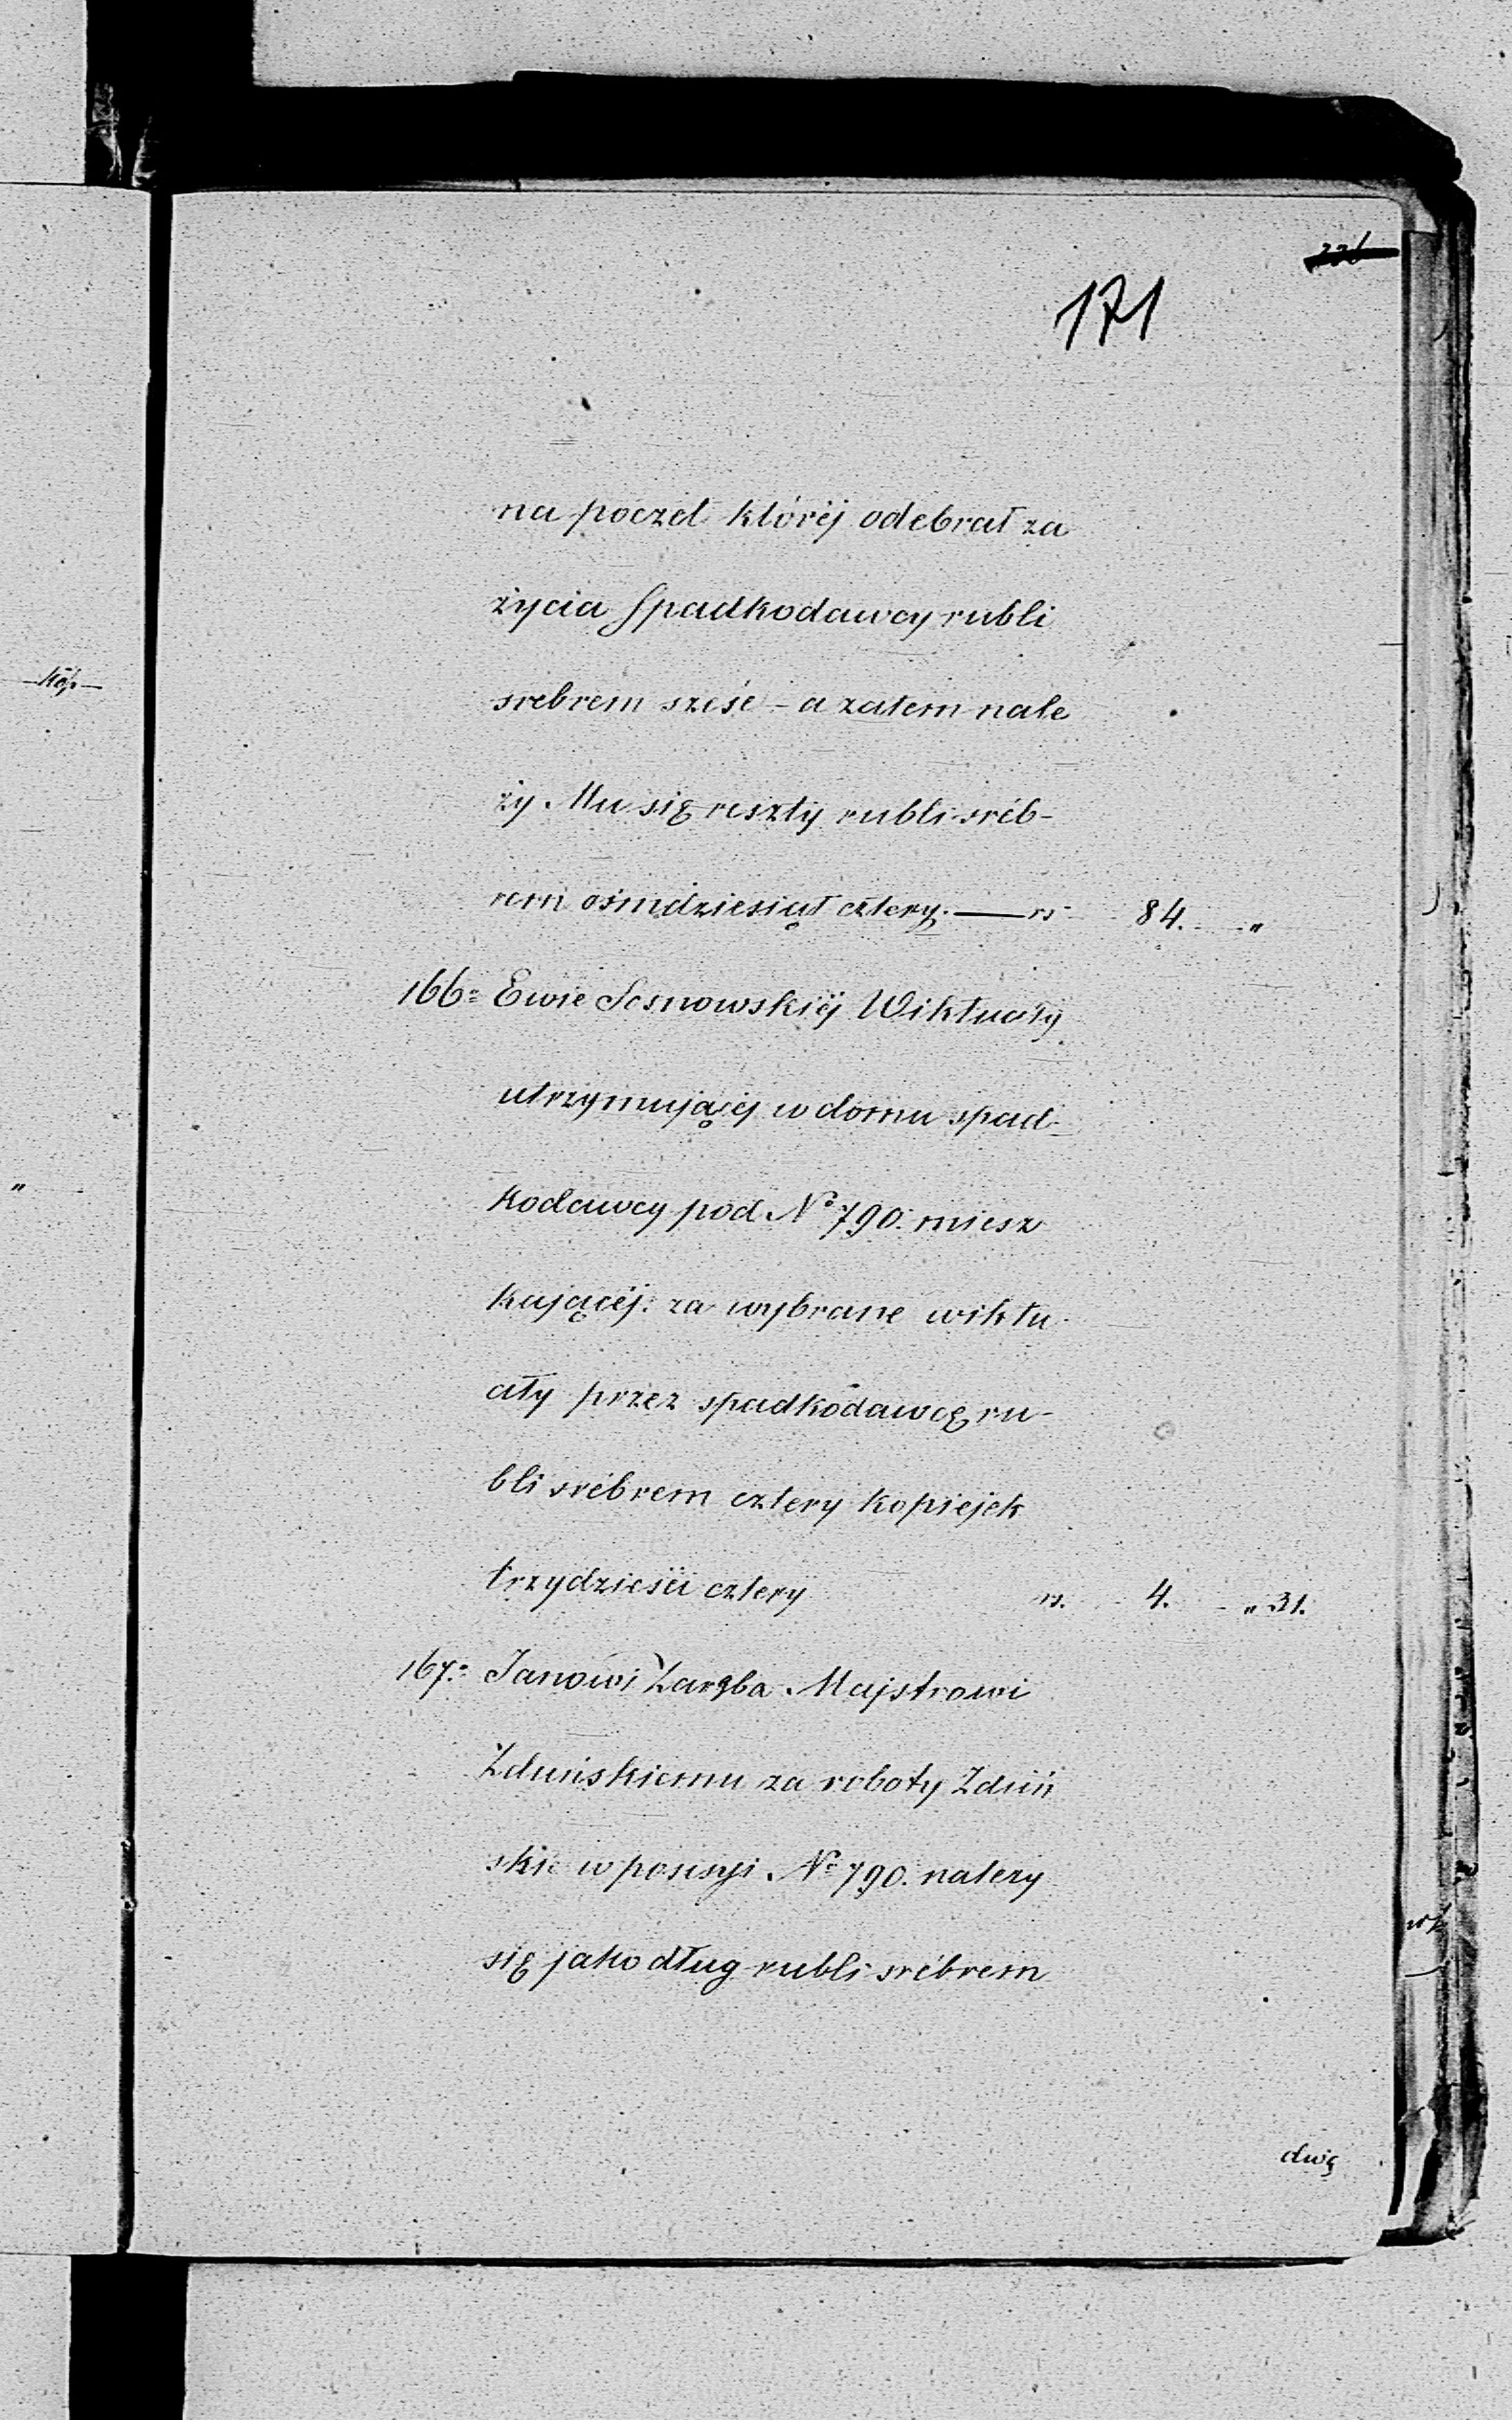 171
na poczet któréj odebrał za
życia Spadkodawcy rubli
srebrem sześć - a zatem nale
ży Mu się reszty rubli sréb-
rem ośmdziesiąt cztery. — rs 84. - "
166. Ewie Sosnowskiéj Wiktuały
utrzymującéj w domu spad-
kodawcy pod No 790. miesz
kającéj. za wybrane wiktu
ały przez spadkodawcę ru-
bli srébrem cztery kopiejek
trzydzieści cztery rs. 4. - " 31.
167. Janowi Zaręba Majstrowi
Zduńskiemu za roboty Zduń
skie w possesyi No 790. należy
się jako dług rubli srébrem
dwę
-Kop-
"